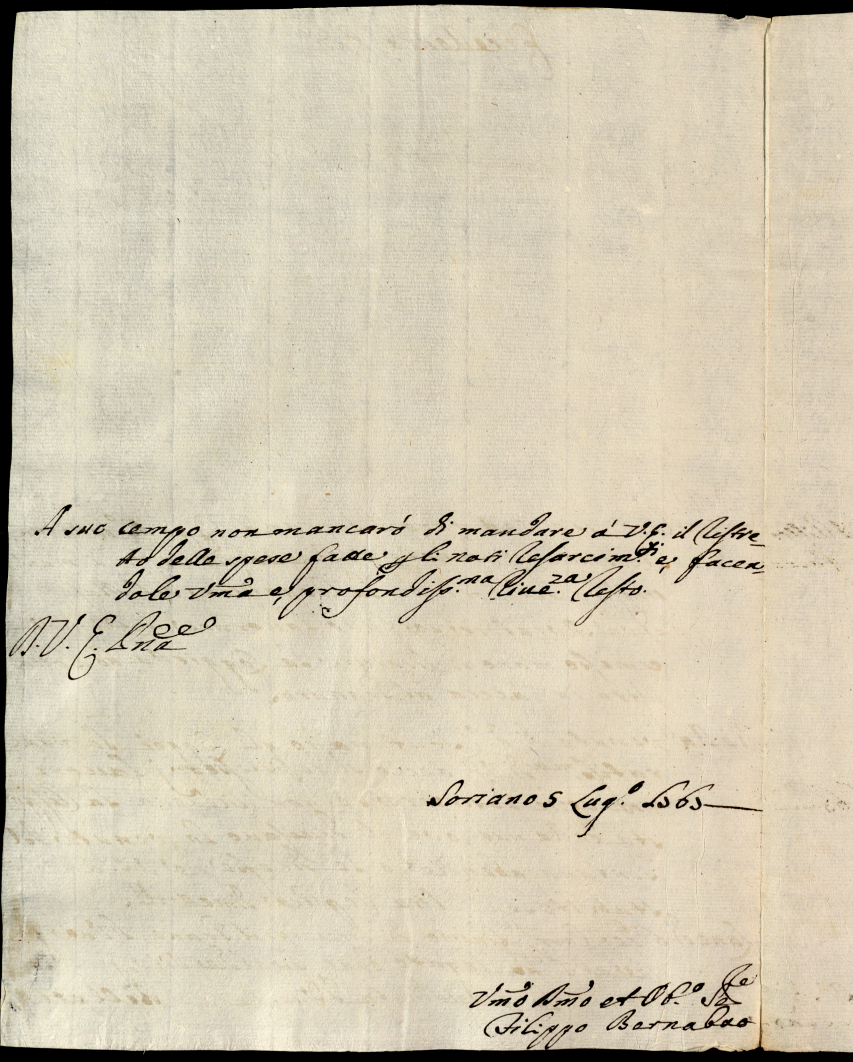 A suo tempo non mancarò di mandare à V.E. il Ristre-
tto delle spese fatte p gli noti Resarcim.ti e, facen-
dole Vm̃a e, profondiss.ma River.za Resto.
D. V. E. Pña
Soriano 5 Lug.o 1763
Vm̃o Dm̃o et Ob.o
Filippo Bernabao